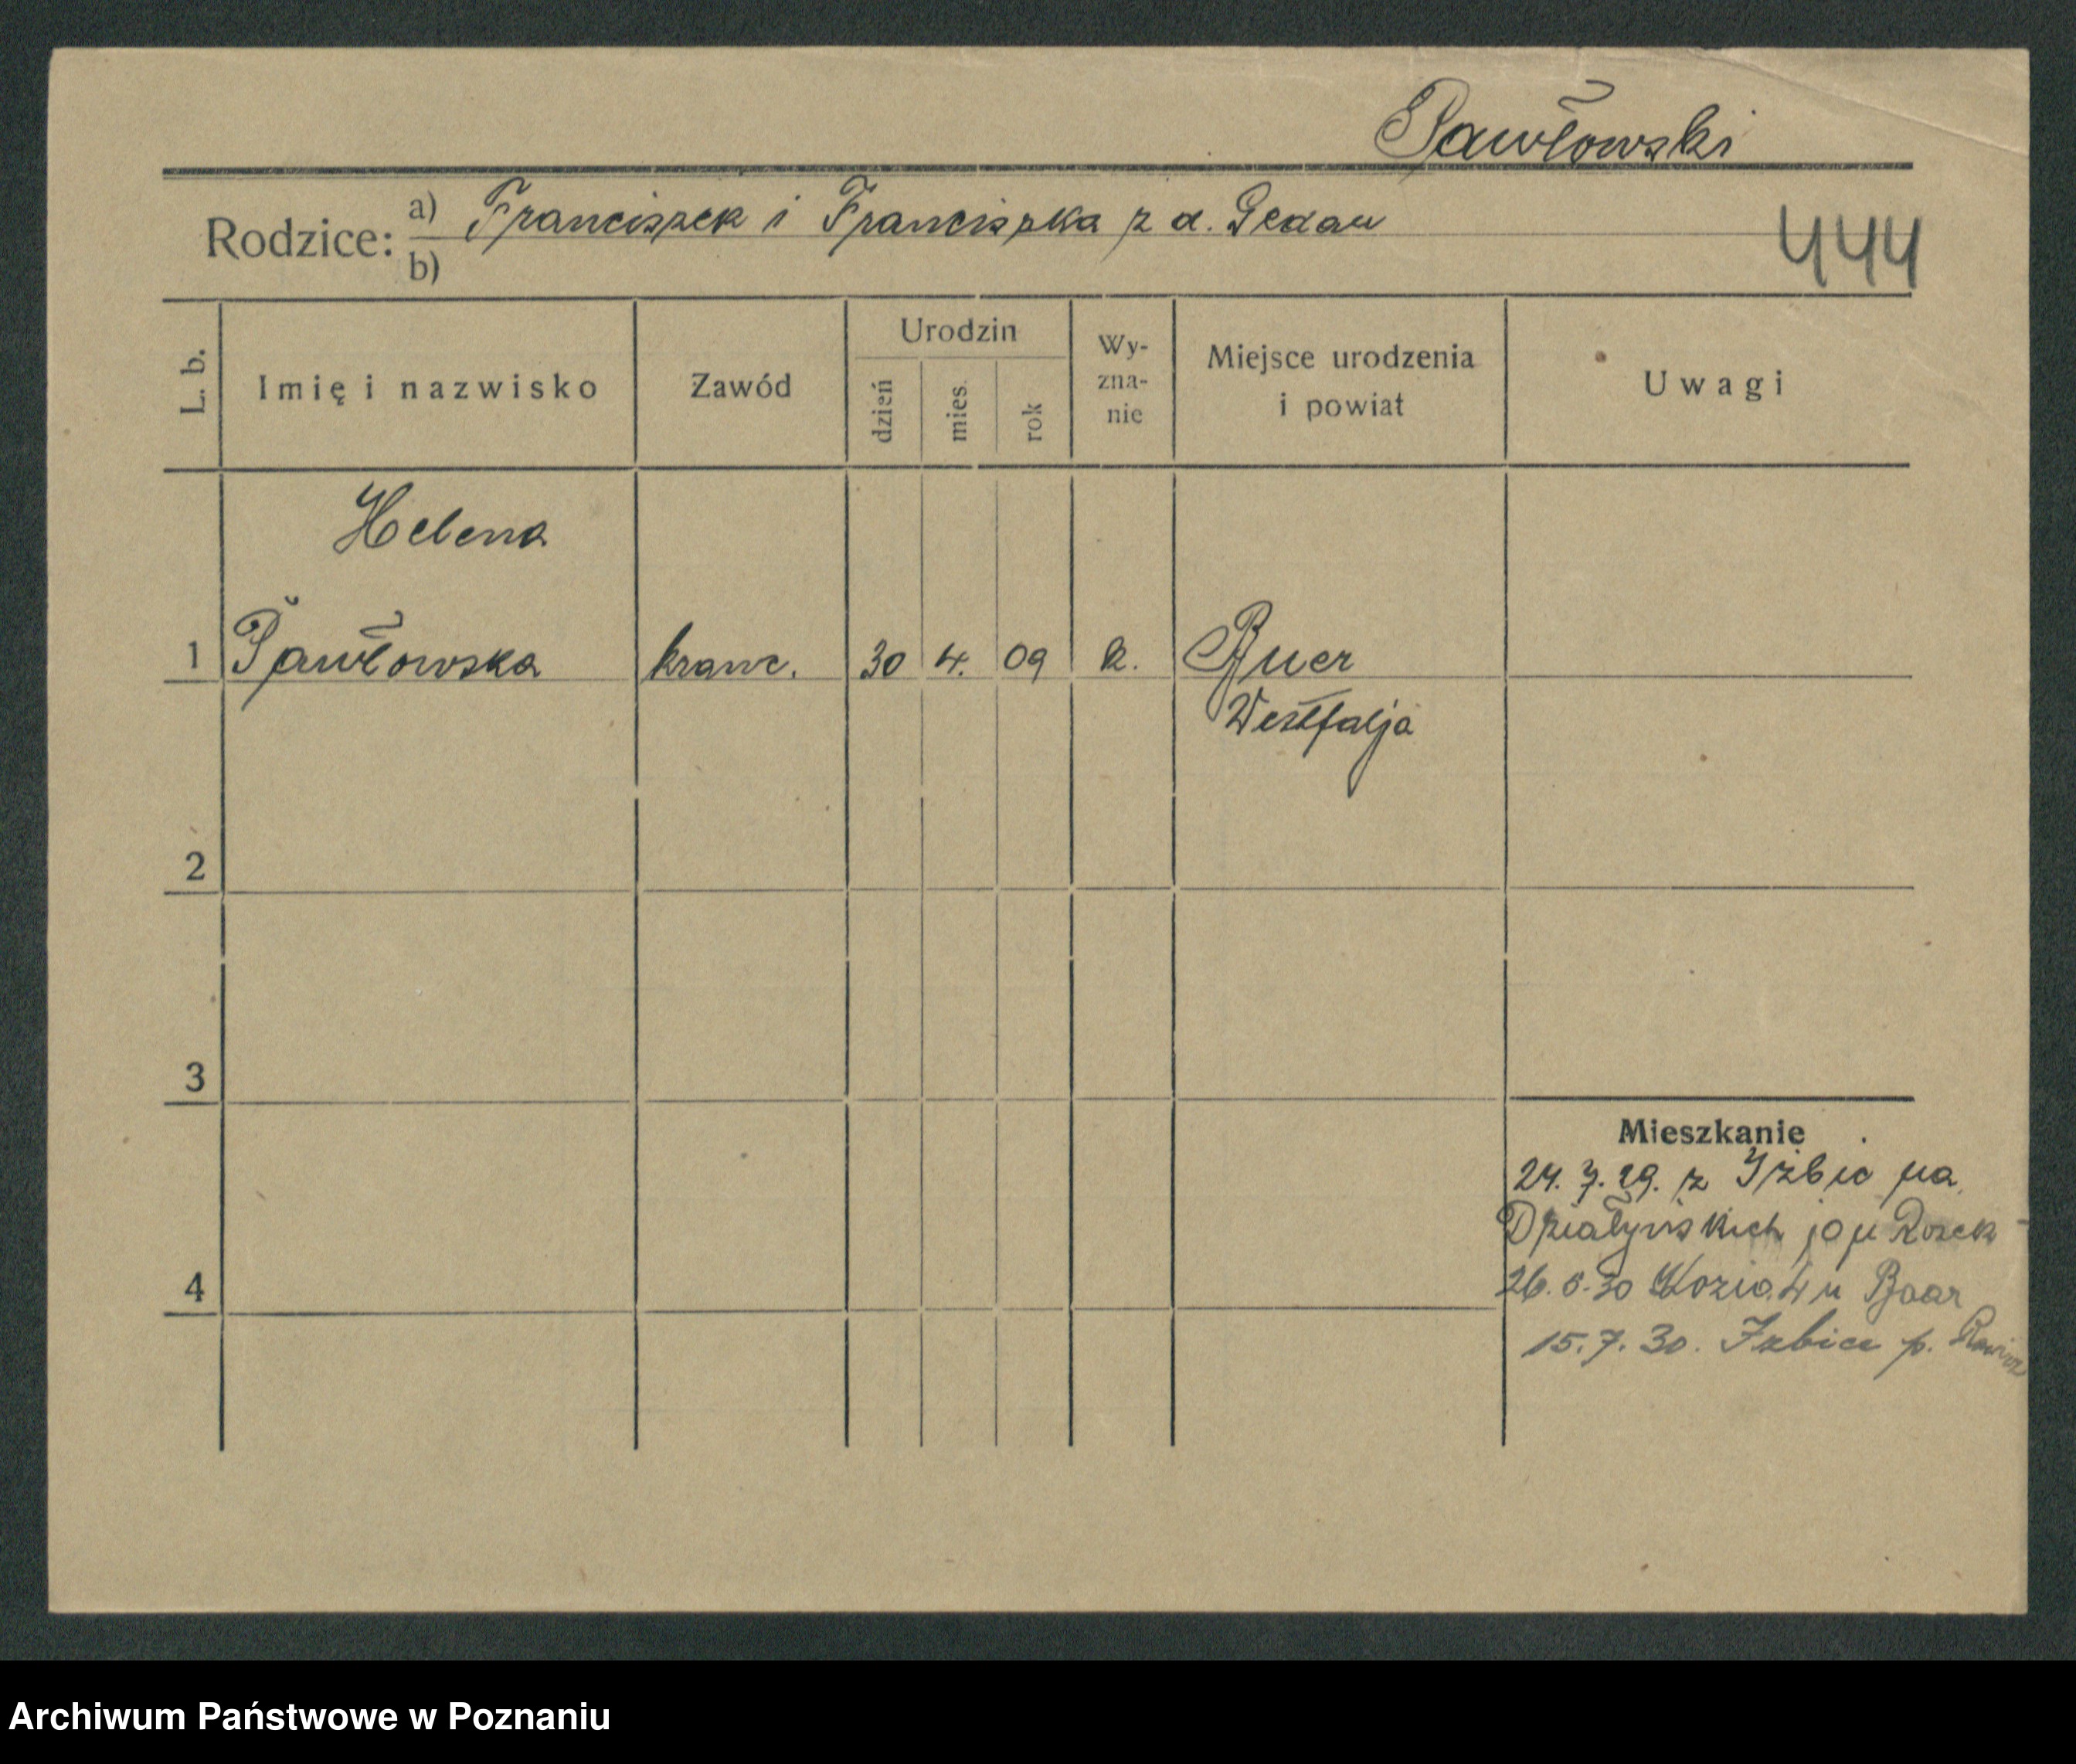 Pawłowski
Rodzice: a) Franciszek i Franciszka z d. Gedau
b)
444
L. b. Imię i nazwisko Zawód Urodzin dzień mies. rok Wy-zna-nie Miejsce urodzenia i powiat Uwagi
Helena
1 Pawłowska krawc. 30 4. 09 k. Buer
Westfalja
2
3
Mieszkanie
24. 7. 29. z Izbic na
Działyńskich
4
26. 5. 30 Kozia 4 u Baar
15. 7. 30. Izbice p. Rawicz
Archiwum Państwowe w Poznaniu